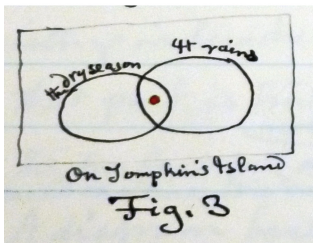 the dry season
It rains
On Tomphin's Island
Fig. 3